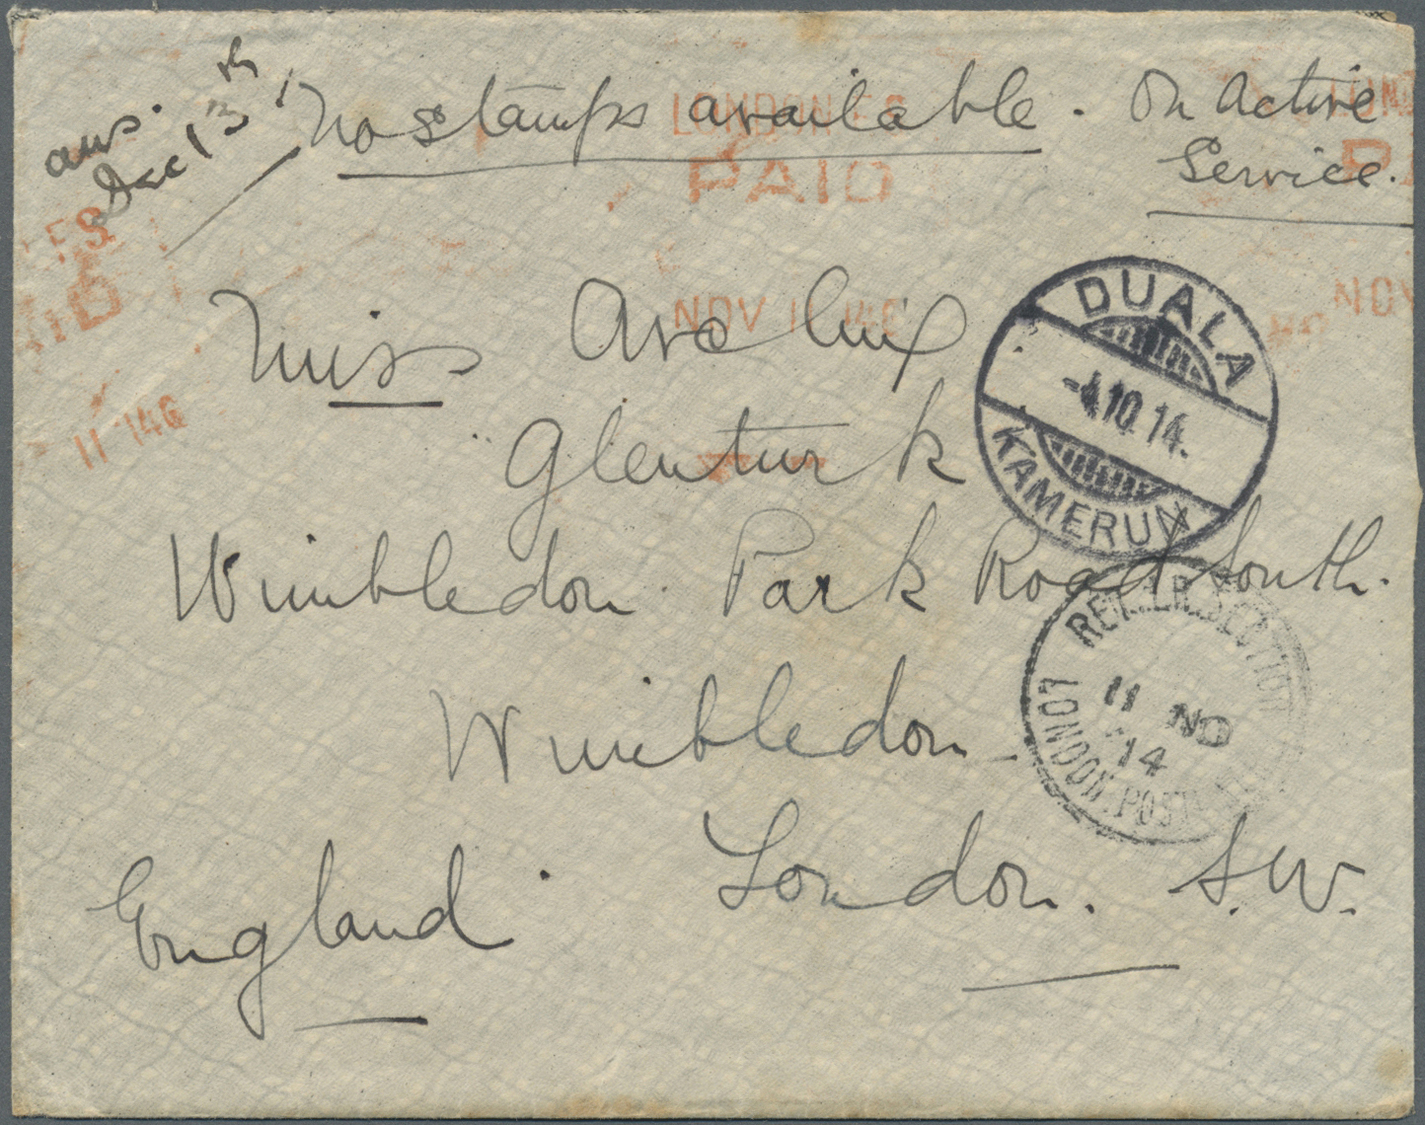 ans.
Dec 13th
No stamps available. On Active
Service.
LONDON F.S.
PAID
NOV 11 14
PAID
NOV
11 14G
Miss Aveling
"Glenturk"
Wimbledon Park Road South.
Wimbledon
London. S.W.
England.
DUALA
-4.10.14.
KAMERUN
RET. LR. SECTION
11 NO
14
LONDON POSTAL